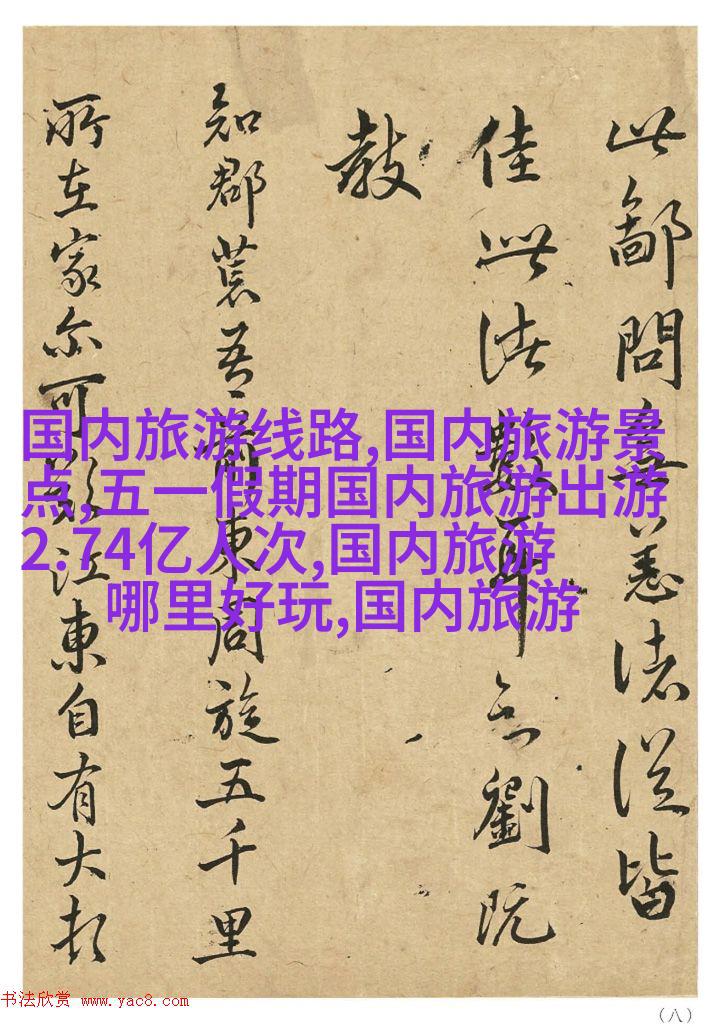 此鄙問無恙诸從皆
佳 數耶 劉既
教
知郡荒吾 東 旋五千里
所在家亦可 江東自有大
国内旅游线路,国内旅游景
点,五一假期国内旅游出游
2.74亿人次,国内旅游
哪里好玩,国内旅游
书法欣赏 www.yac8.com
（八）